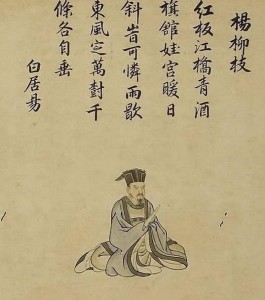 楊柳枝
紅板江橋青酒
旗館娃宮暖日
斜旹可憐雨歇
東風定萬對千
條各自垂
白居易